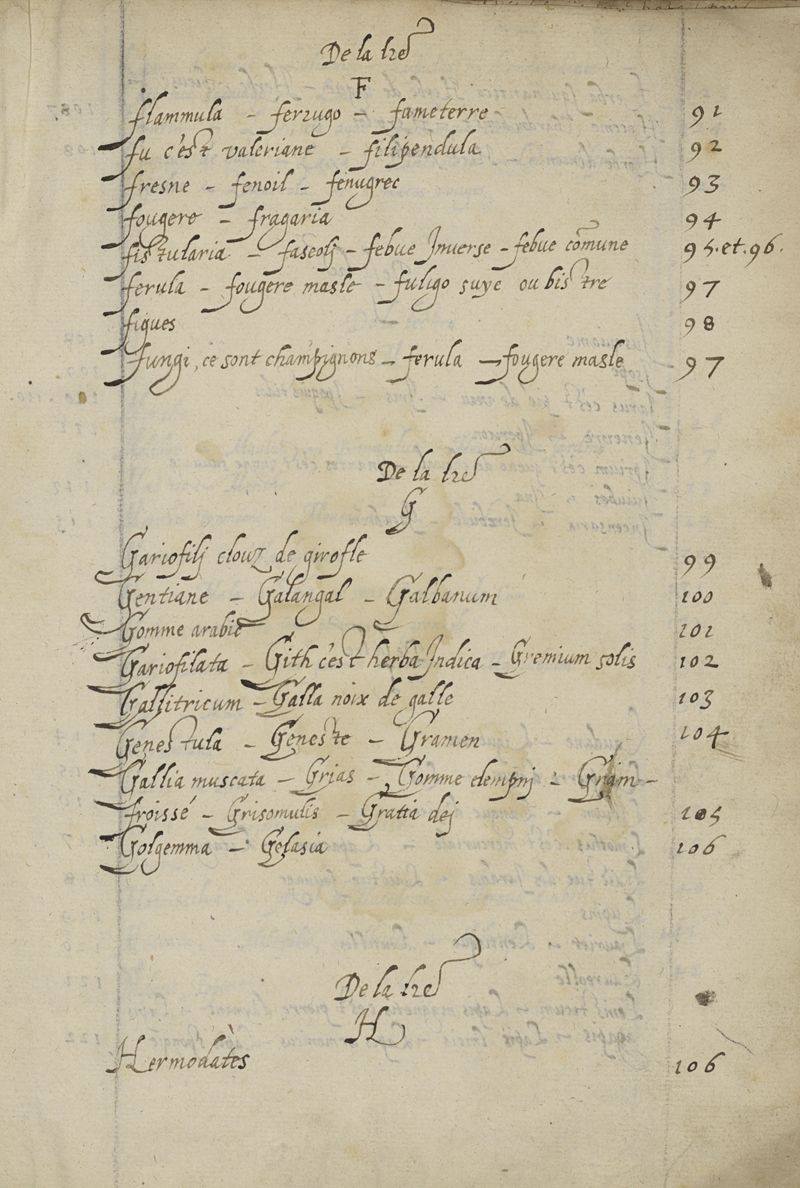 De la lre
F
flammula - ferrugo - fameterre 91
fu c'est valeriane - filipendula 92
fresne - fenoil - fenugrec 93
fougere - fragaria 94
fistularia - faseolj - febue Inuerse - febue cõmune 95.et.96.
ferula - fougere masle - fuligo suye ou bistre 97
figues 98
fungi, ce sont champignons - ferula - fougere masle 97
De la lre
G
Gariofilj clouz de girofle 99
Gentiane - Galangal - Galbanum 100
Gomme arabic 101
Gariofilata - Gith c'est herba Indica - Gremium solis 102
Gallitricum - Galla noix de galle 103
Genestula - Geneste - Gramen 104
Gallia muscata - Grias - Gomme elempnj - Grain-
froissé - Grisomulis - Gratia dej 105
Golgemma - Gelasia 106
De la lre
H
Hermodàtes 106